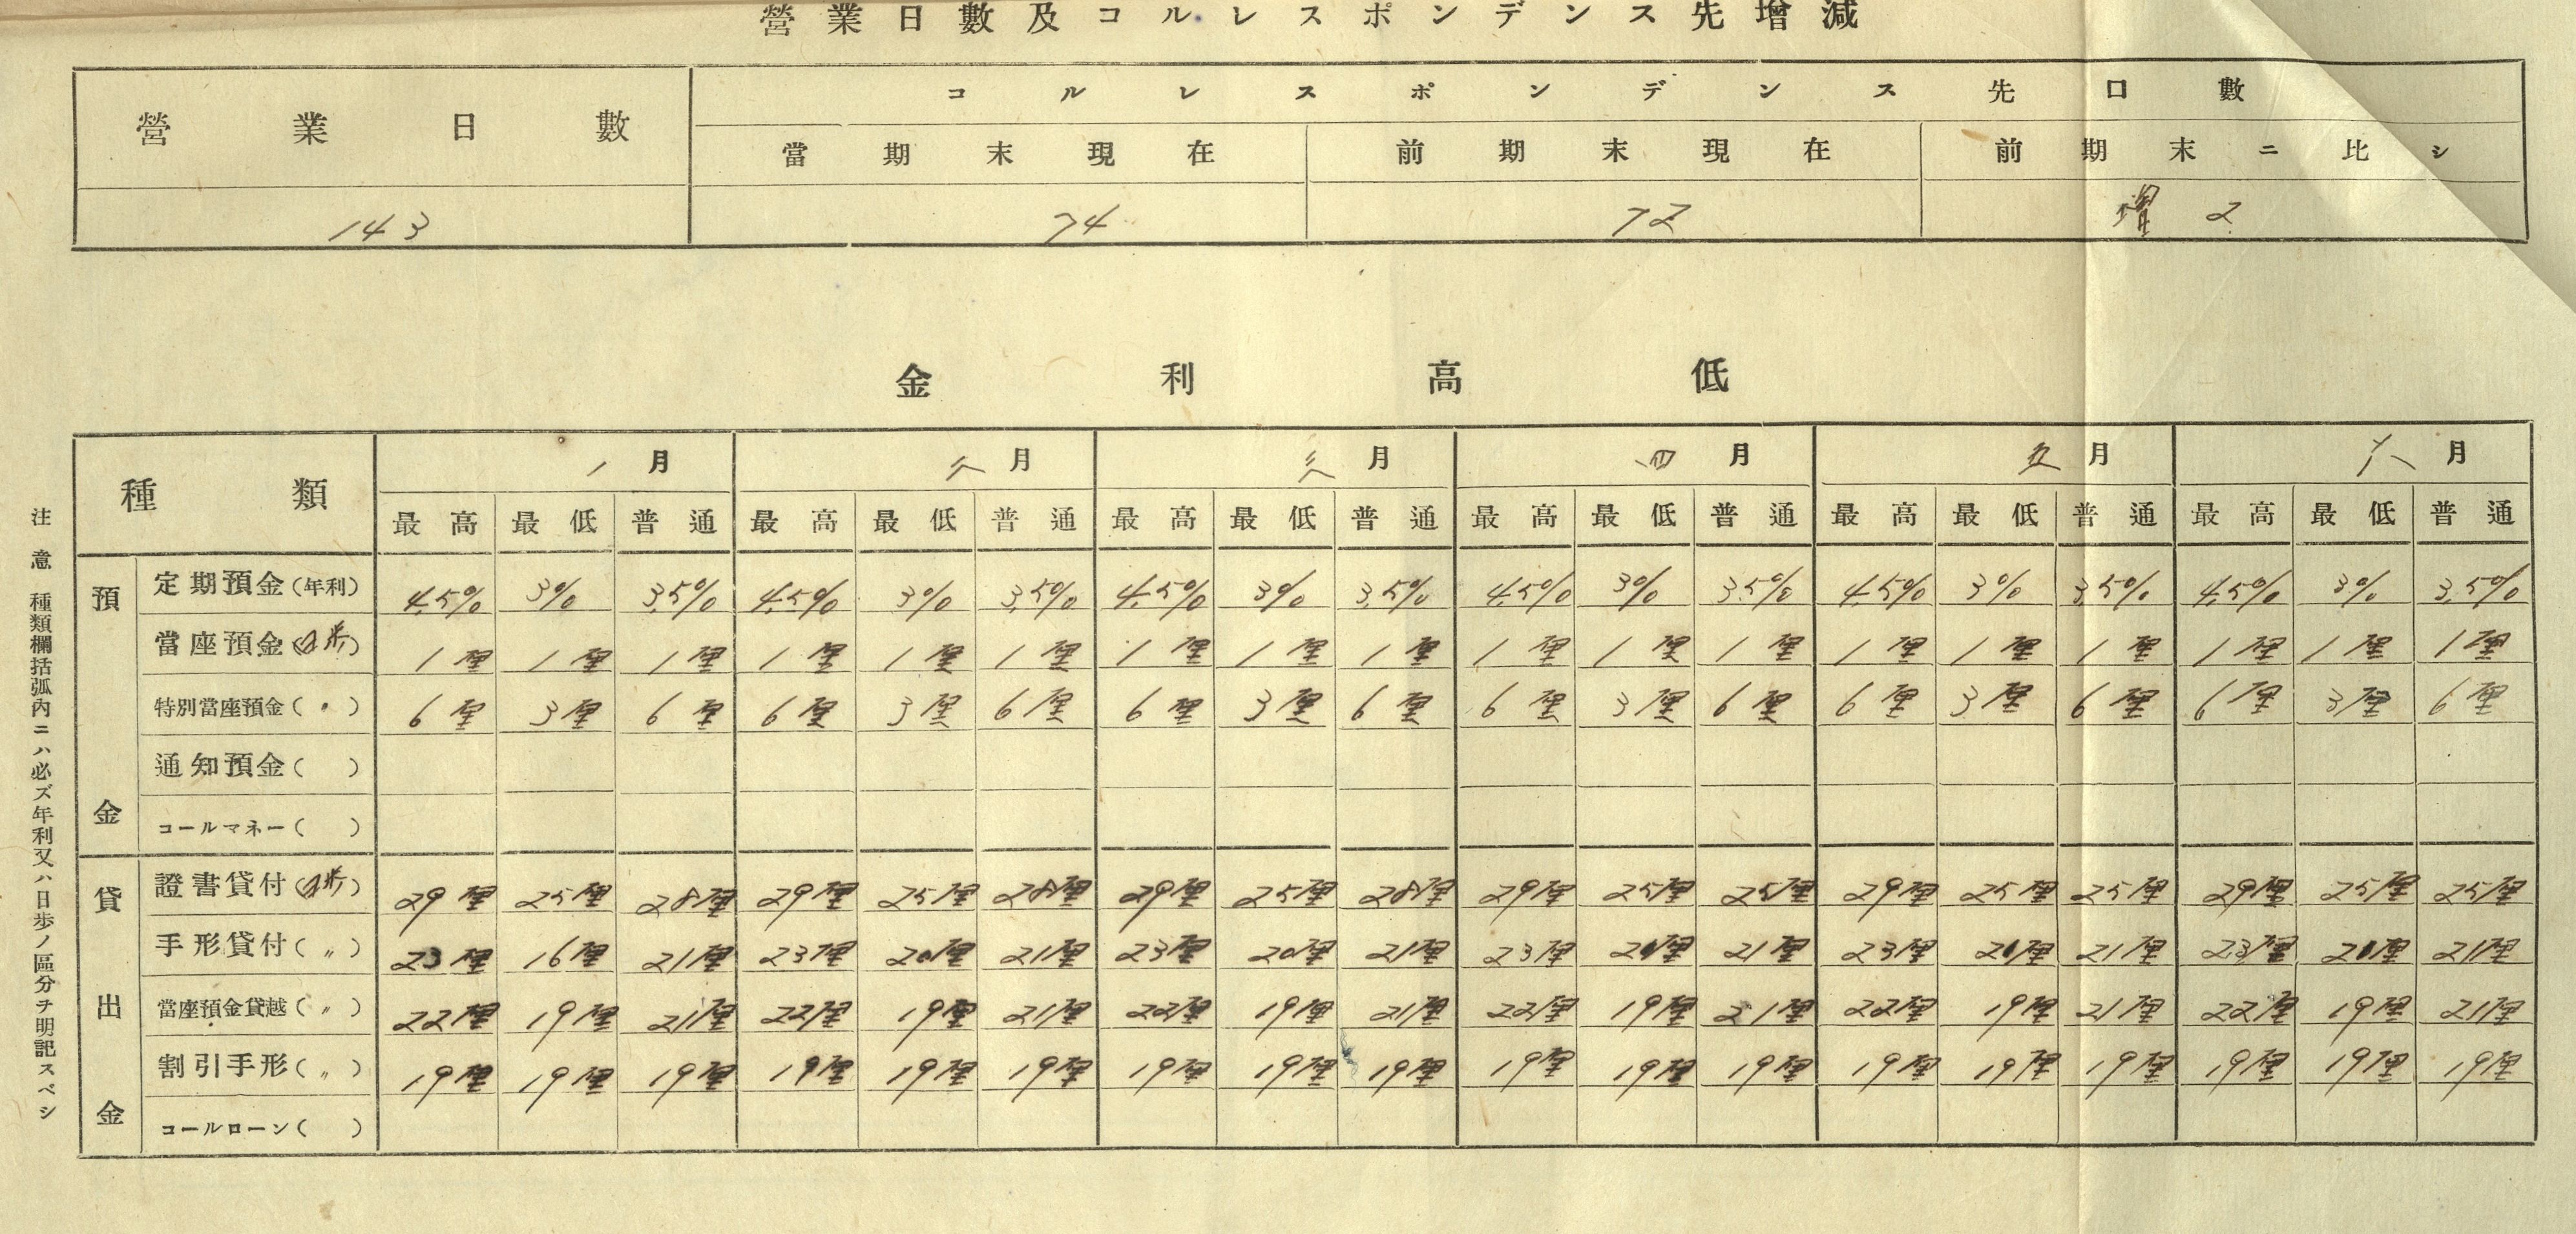 營業日數及コルレスポンデンス先增減
營業日數
コルレスポンデンス先口數
當期末現在 前期末現在 前期末ニ比シ
143 74 72 增 2
金利高低
種類 一月 二月 三月 四月 五月 六月
最高 最低 普通 最高 最低 普通 最高 最低 普通 最高 最低 普通 最高 最低 普通 最高 最低 普通
預金
定期預金(年利) 4.5% 3% 3.5% 4.5% 3% 3.5% 4.5% 3% 3.5% 4.5% 3% 3.5% 4.5% 3% 3.5% 4.5% 3% 3.5%
當座預金(日歩) 1厘 1厘 1厘 1厘 1厘 1厘 1厘 1厘 1厘 1厘 1厘 1厘 1厘 1厘 1厘 1厘 1厘 1厘
特別當座預金(〃) 6厘 3厘 6厘 6厘 3厘 6厘 6厘 3厘 6厘 6厘 3厘 6厘 6厘 3厘 6厘 6厘 3厘 6厘
通知預金( )
コールマネー( )
貸出金
證書貸付(日歩) 29厘 25厘 28厘 29厘 25厘 28厘 29厘 25厘 28厘 29厘 25厘 25厘 29厘 25厘 25厘 29厘 25厘 25厘
手形貸付(〃) 23厘 16厘 21厘 23厘 20厘 21厘 23厘 20厘 21厘 23厘 20厘 21厘 23厘 20厘 21厘 23厘 20厘 21厘
當座預金貸越(〃) 22厘 19厘 21厘 22厘 19厘 21厘 22厘 19厘 21厘 22厘 19厘 21厘 22厘 19厘 21厘 22厘 19厘 21厘
割引手形(〃) 19厘 19厘 19厘 19厘 19厘 19厘 19厘 19厘 19厘 19厘 19厘 19厘 19厘 19厘 19厘 19厘 19厘 19厘
コールローン( )
注意 種類欄括弧內ニハ必ズ年利又ハ日歩ノ區分ヲ明記スベシ